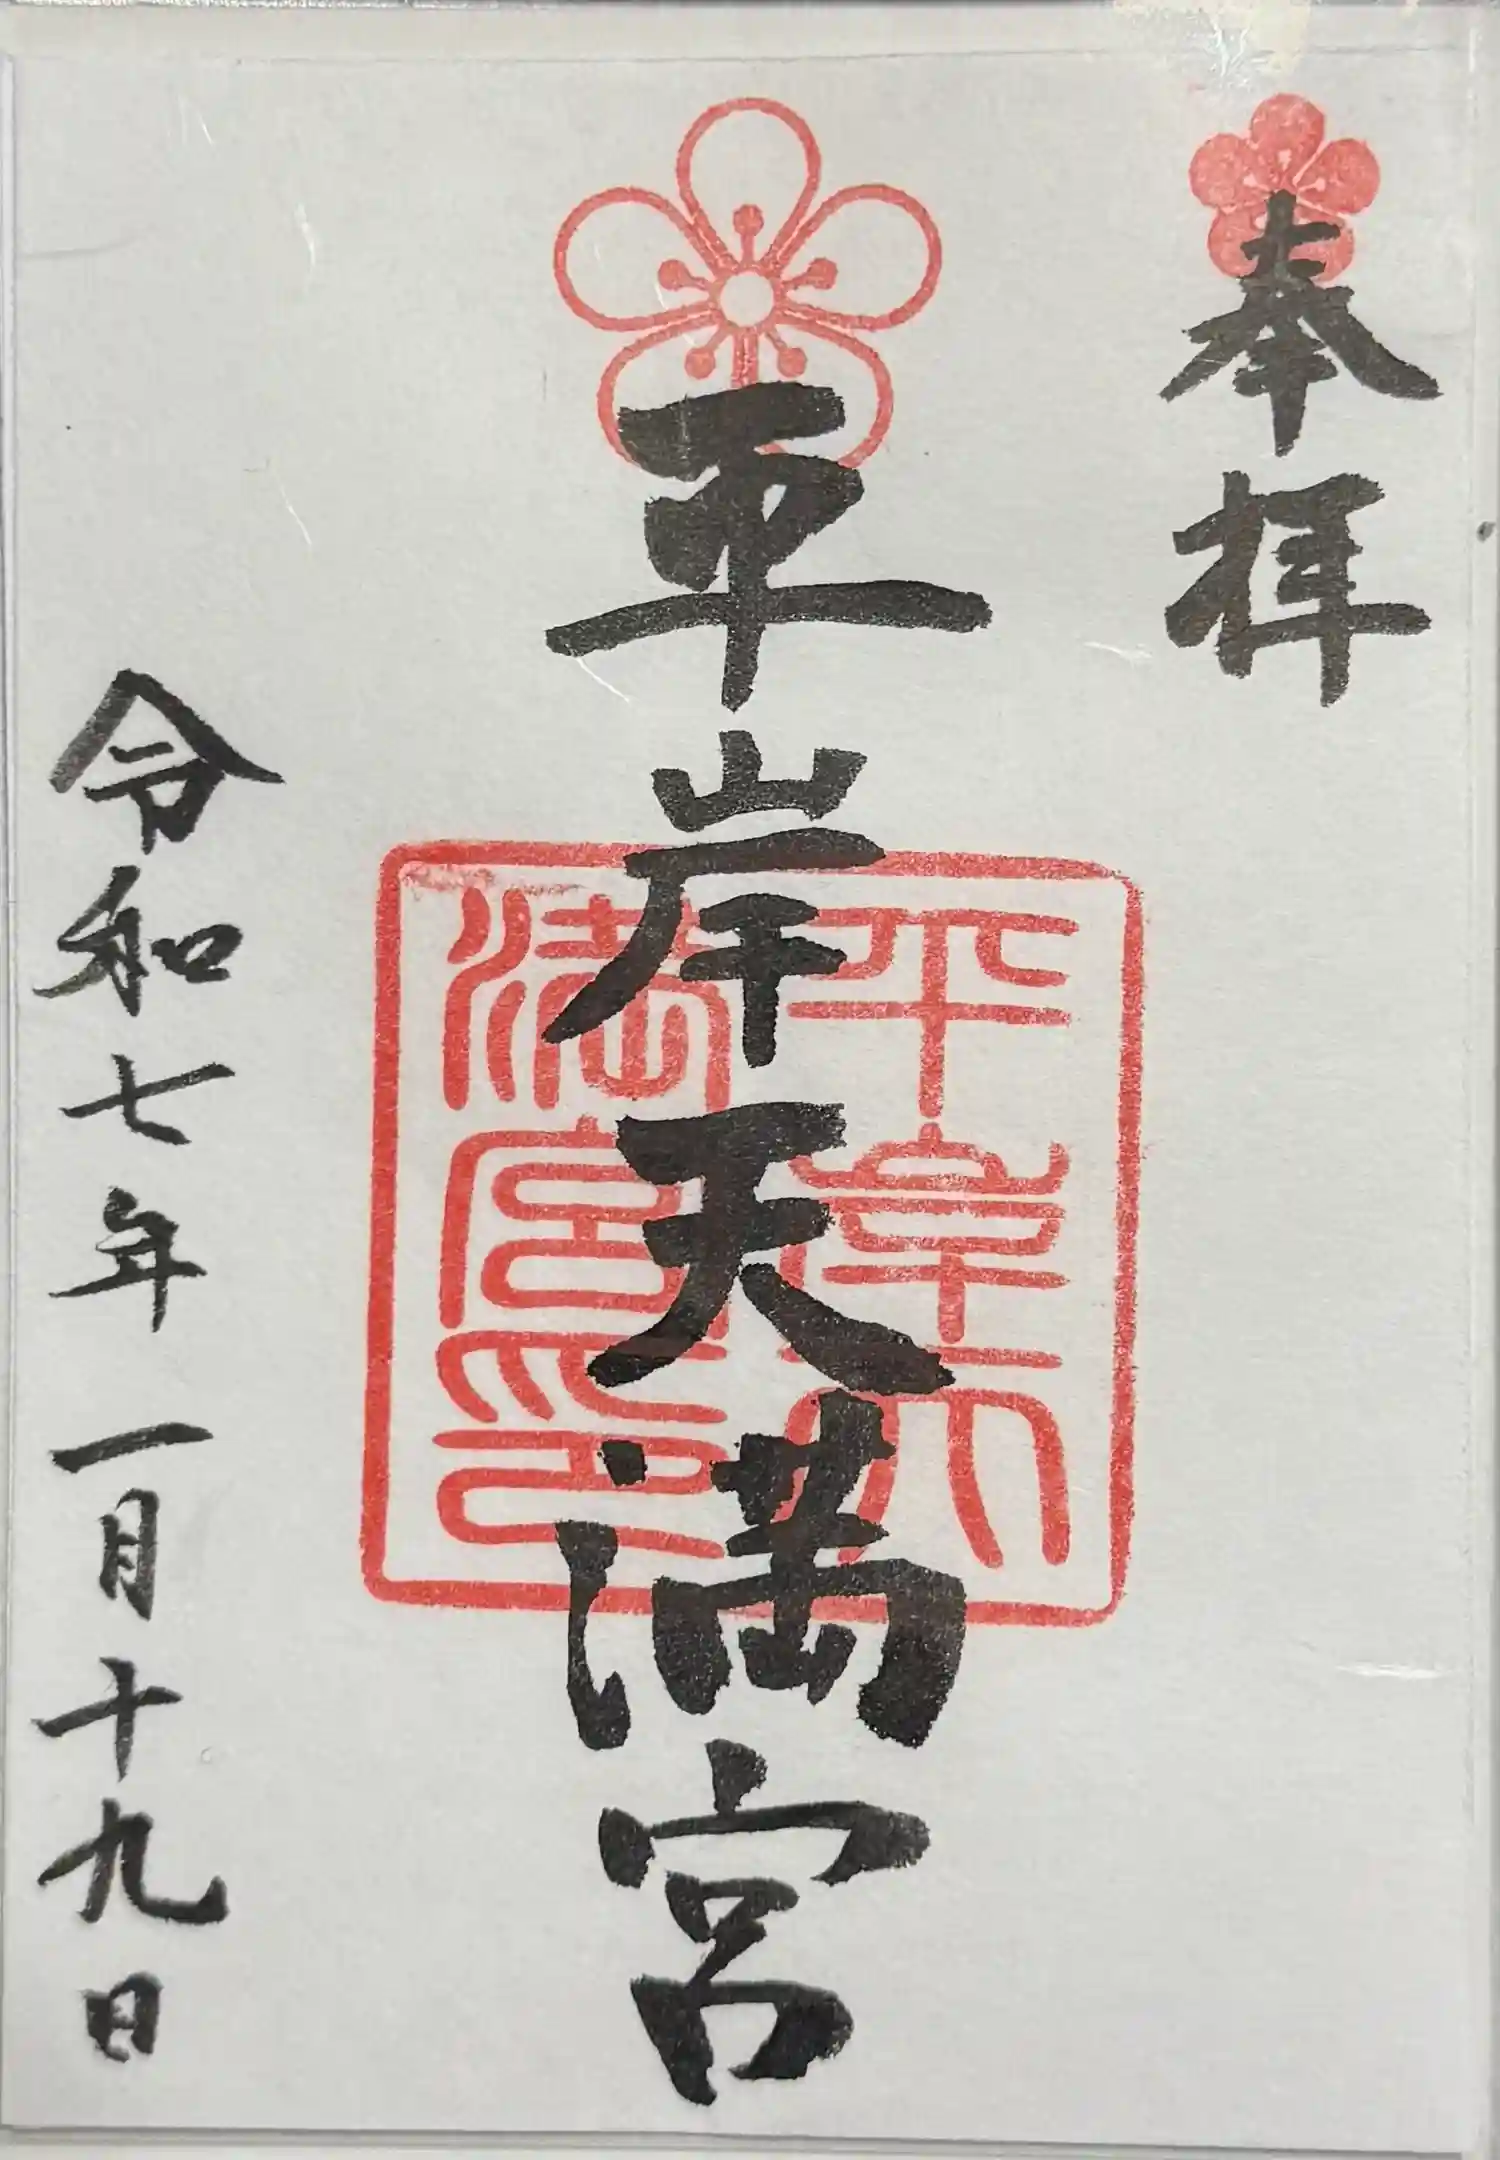 奉拝
平岸天満宮
平岸天
満宮印
令和七年一月十九日